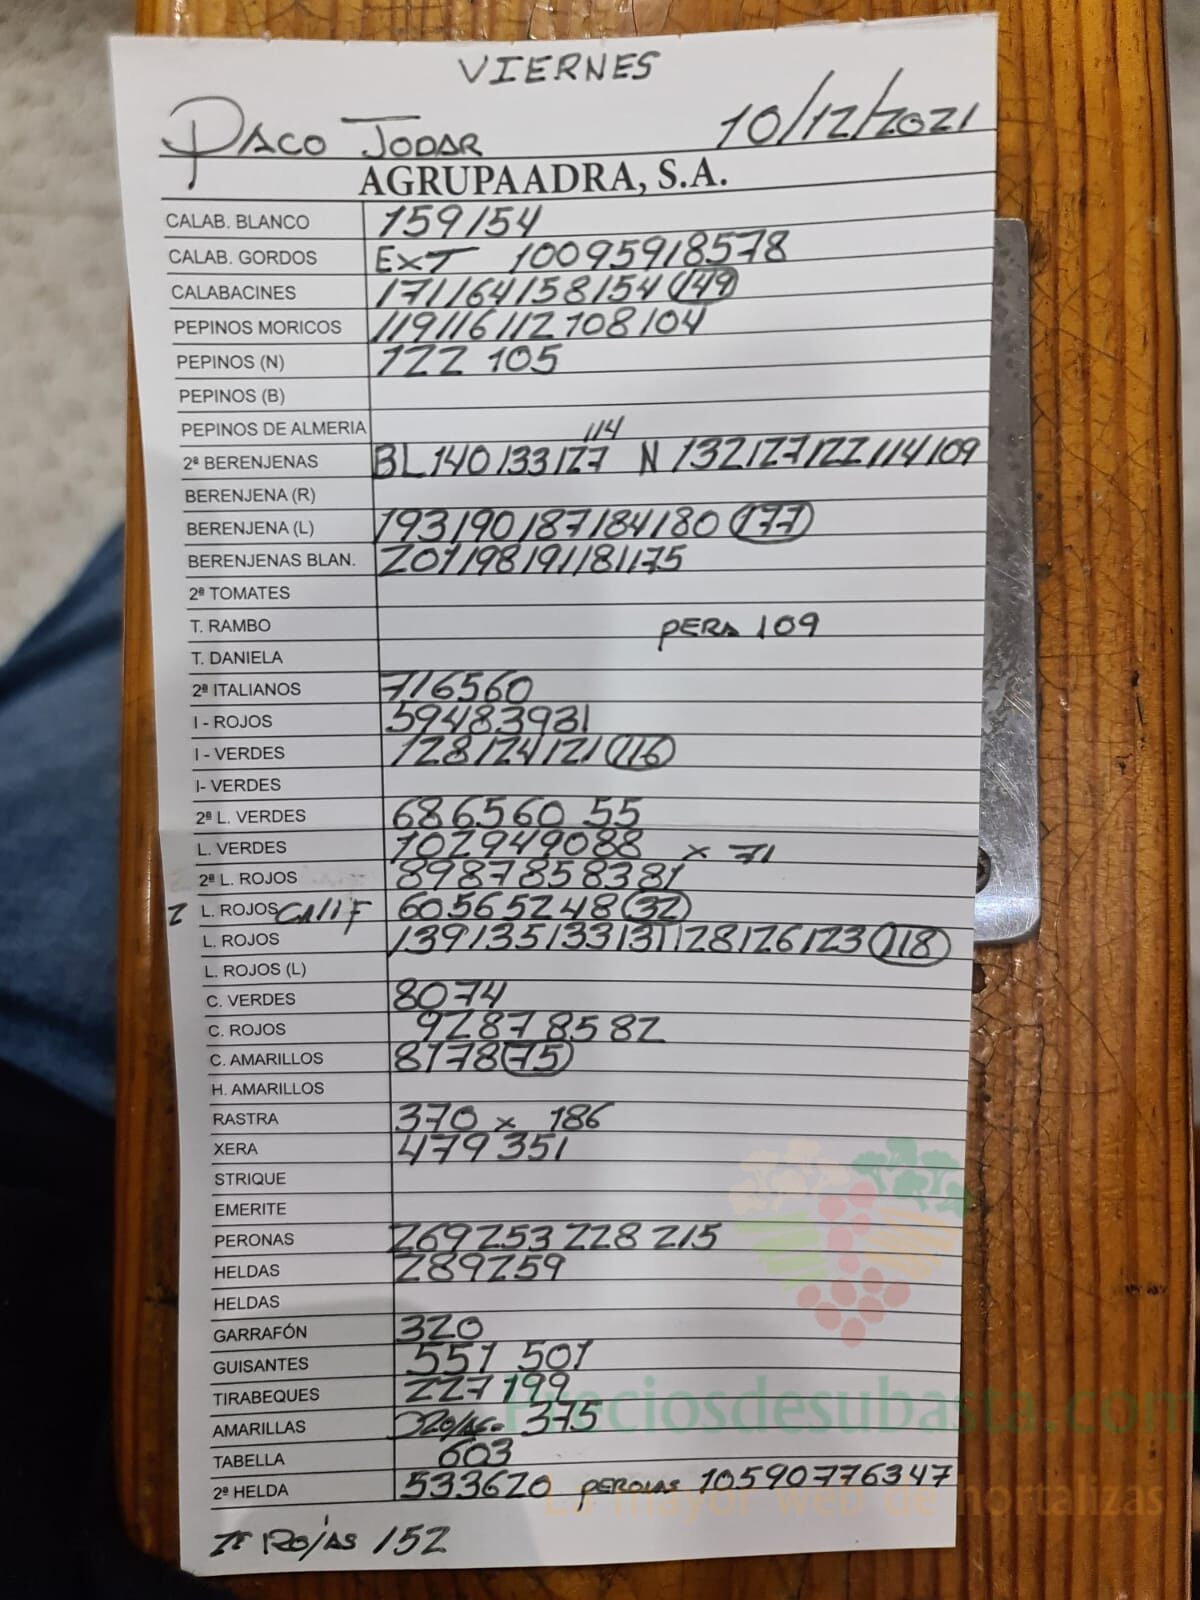 VIERNES
PACO JODAR 10/12/2021
AGRUPAADRA, S.A.
CALAB. BLANCO 159154
CALAB. GORDOS EXT 10095918578
CALABACINES 171164158154 149
PEPINOS MORICOS 119116112 108104
PEPINOS (N) 122 105
PEPINOS (B)
PEPINOS DE ALMERIA 114
2ª BERENJENAS BL140133127 N 132127122114109
BERENJENA (R)
BERENJENA (L) 193190187184180 177
BERENJENAS BLAN. 201198191181175
2ª TOMATES
T. RAMBO PERA 109
T. DANIELA
2ª ITALIANOS 716560
I - ROJOS 59483931
I - VERDES 128124121 116
I- VERDES
2ª L. VERDES 686560 55
L. VERDES 102949088 x 71
2ª L. ROJOS 8987858381
2 L. ROJOS CALIF 60565248 32
L. ROJOS 139135133131128126123 118
L. ROJOS (L)
C. VERDES 8074
C. ROJOS 92878582
C. AMARILLOS 8178 75
H. AMARILLOS
RASTRA 370 x 186
XERA 479351
STRIQUE
EMERITE
PERONAS 269253 228 215
HELDAS 289259
HELDAS
GARRAFÓN 320
GUISANTES 551 501
TIRABEQUES 227199
AMARILLAS 375
TABELLA 603
2ª HELDA 533620 PEROLAS 10590776347
2ª ROJAS 152
Preciosdesubasta.com
La mayor web de hortalizas